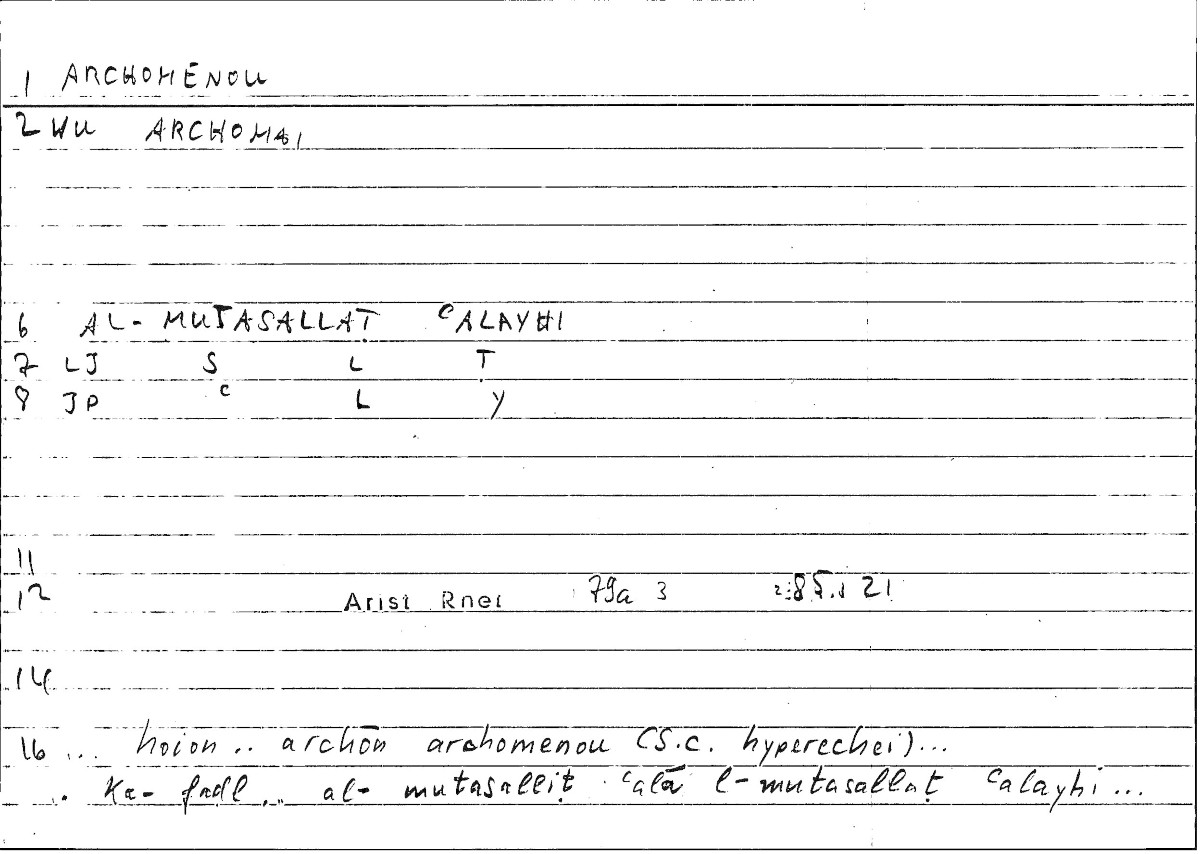 1 ARCHOMĒNOU
2 WU ARCHOMAI
6 AL- MUTASALLAṬ ᶜALAYHI
7 LJ S L Ṭ
8 JP ᶜ L Y
11
12 Arist Rhet 79a 3 85.1 21
14
16 ... hoion .. archōn archomenou (S.c. hyperechei)...
.. Ka- faḍl ... al- mutasalliṭ ᶜalā l-mutasallaṭ ᶜalayhi ...